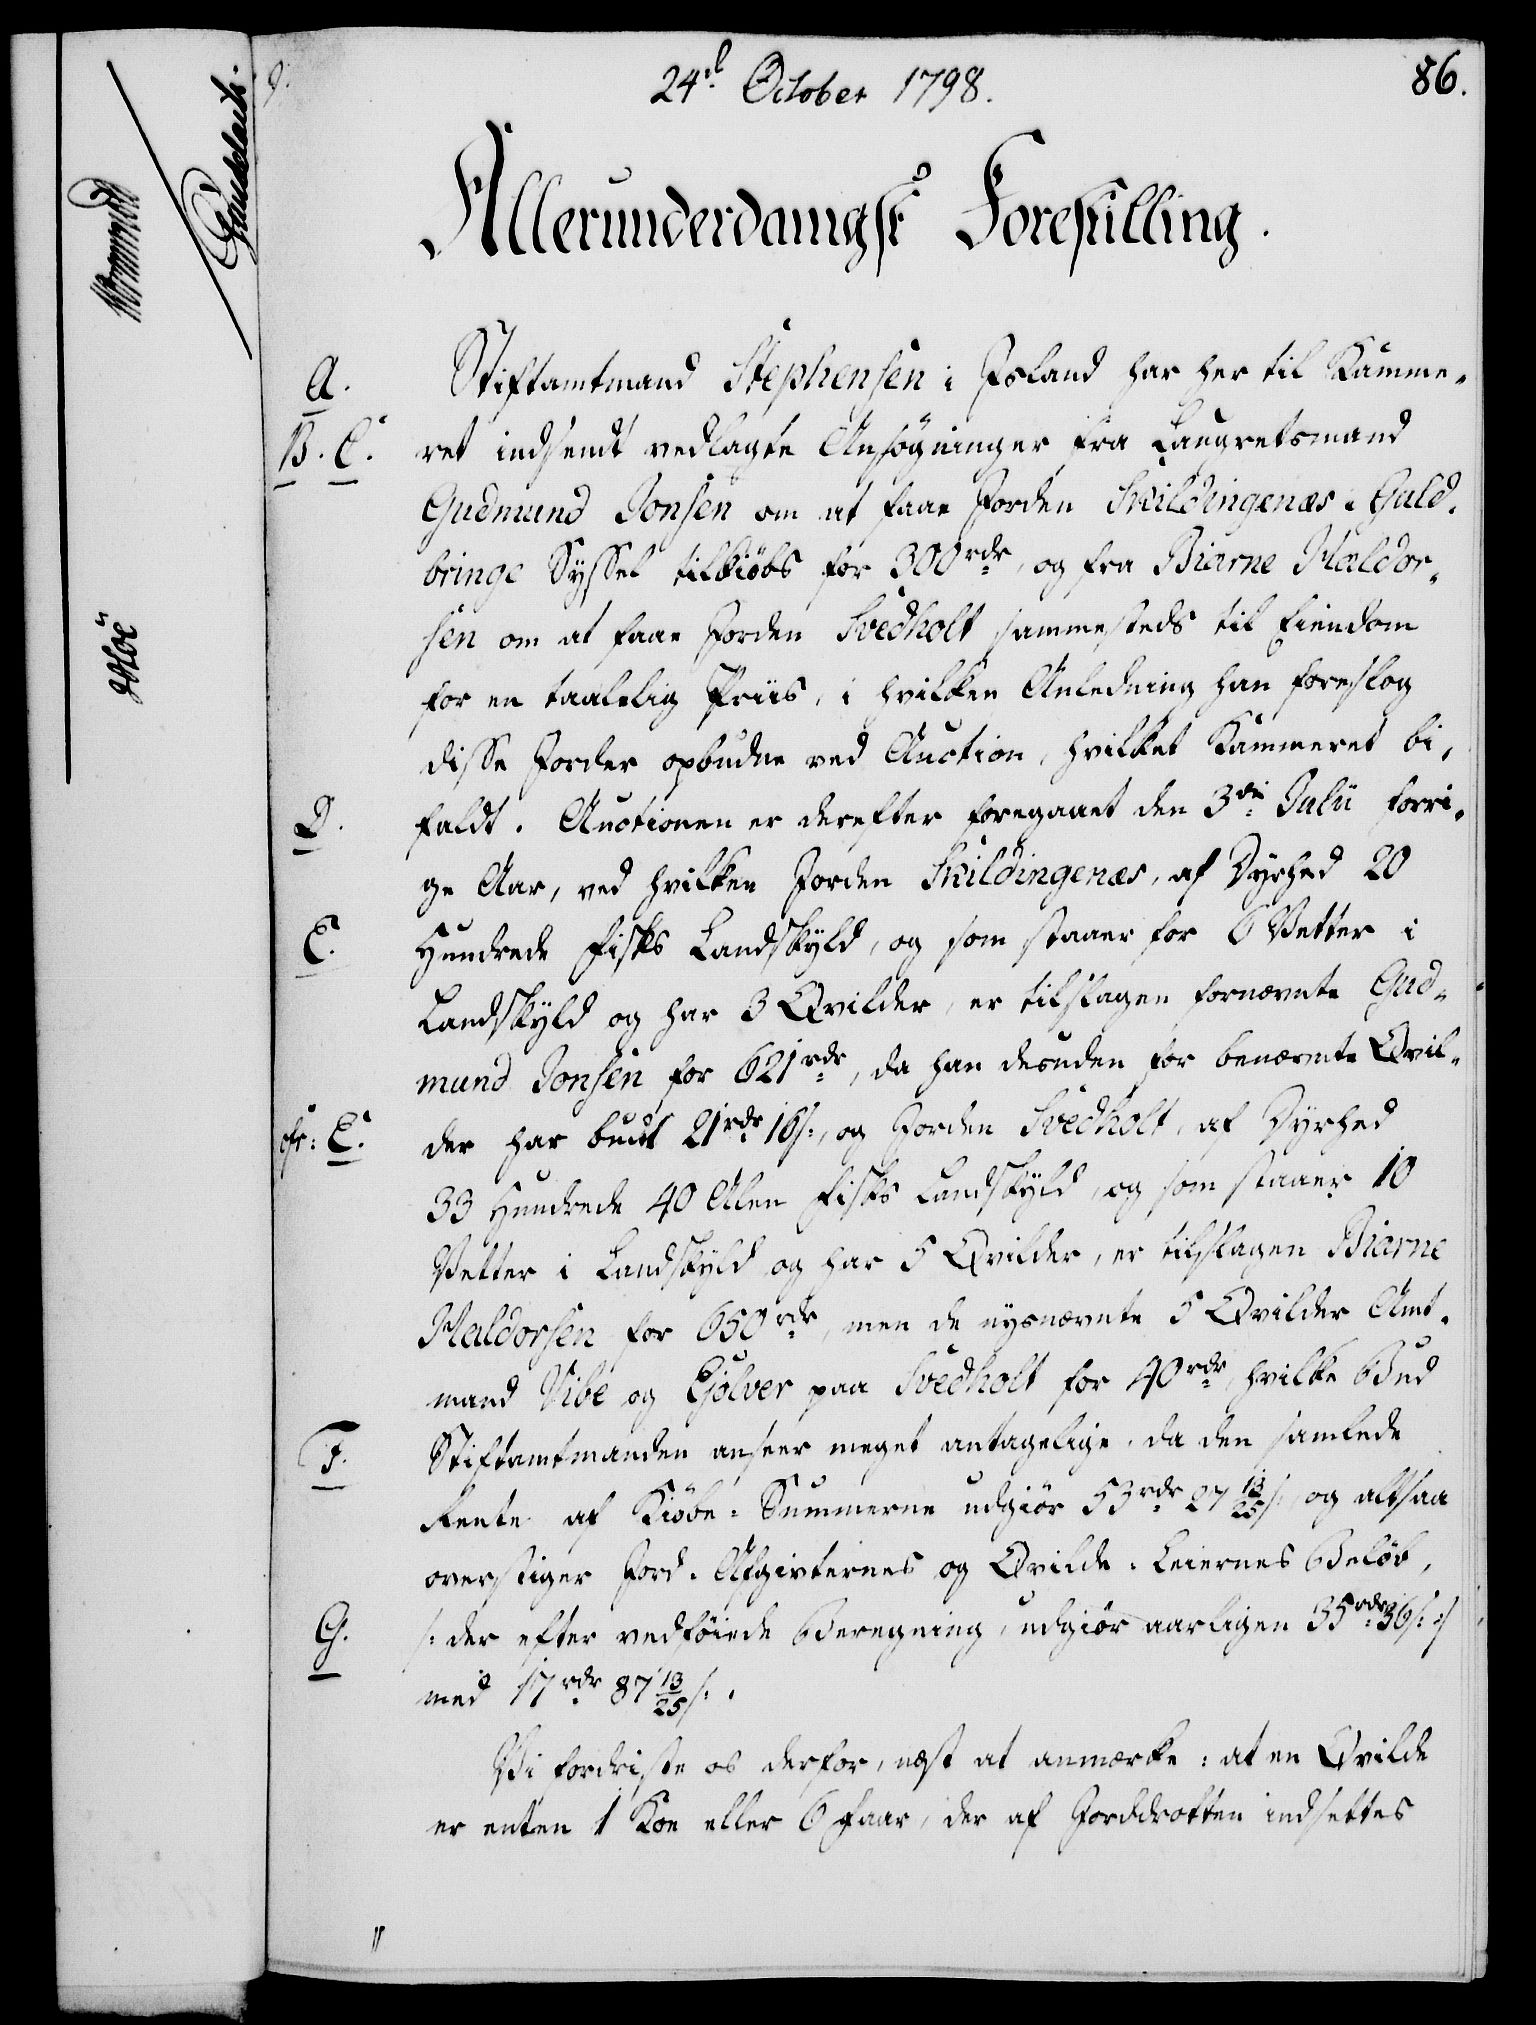 24d October 1798.
86.
Allerunderdanigst Forestilling.
A. Stiftamtmand Stephensen i Island har her til Kamme-
B. C. ret indsendt vedlagte Ansøgninger fra Laugretsmand
Gudmund Jonsen om at faae Jorden Skildingenæs i Guld-
bringe Syssel tilkiøbs for 300 rdr, og fra Biarne Haldor-
sen om at faae Jorden Svedholt sammesteds til Eiendom
for en taalelig Priis, i hvilken Anledning han foreslog
disse Jorder opbudne ved Auction, hvilket Kammeret bi-
D. faldt. Auctionen er derefter foregaaet den 3die Julii forri-
ge Aar, ved hvilken Jorden Skildingenæs, af Dyrhed 20
E. Hundrede Fisks Landskyld, og som staaer for 6 Vetter i
Landskyld og har 3 Qvilder, er tilslagen fornævnte Gud-
mund Jonsen for 621 rdr, da han desuden for benævnte Qvil-
cfr: E. der har budt 21 rdr 16 s:, og Jorden Svedholt, af Dyrhed
33 Hundrede 40 Alen Fisks Landskyld, og som staaer 10
Vetter i Landskyld og har 5 Qvilder, er tilslagen Biarne
Haldorsen for 650 rdr, men de nysnævnte 5 Qvilder Amt-
mand Vibe og Ejolver paa Svedholt for 40 rdr, hvilke Bud
F. Stiftamtmanden anseer meget antagelige, da den samlede
Rente af Kiøbe-Summerne udgiør 53 rdr 27 13/25 s:, og altsaa
overstiger Jord-Afgivternes og Qvilde-Leiernes Beløb,
G. /: der efter vedføiede Beregning, udgiør aarligen 35 rdr 36 s: :/
med 17 rdr 87 13/25 s: .
Vi fordriste os derfor, næst at anmærke: at en Qvilde
er enten 1 Koe eller 6 Faar, der af Jorddrotten indsettes